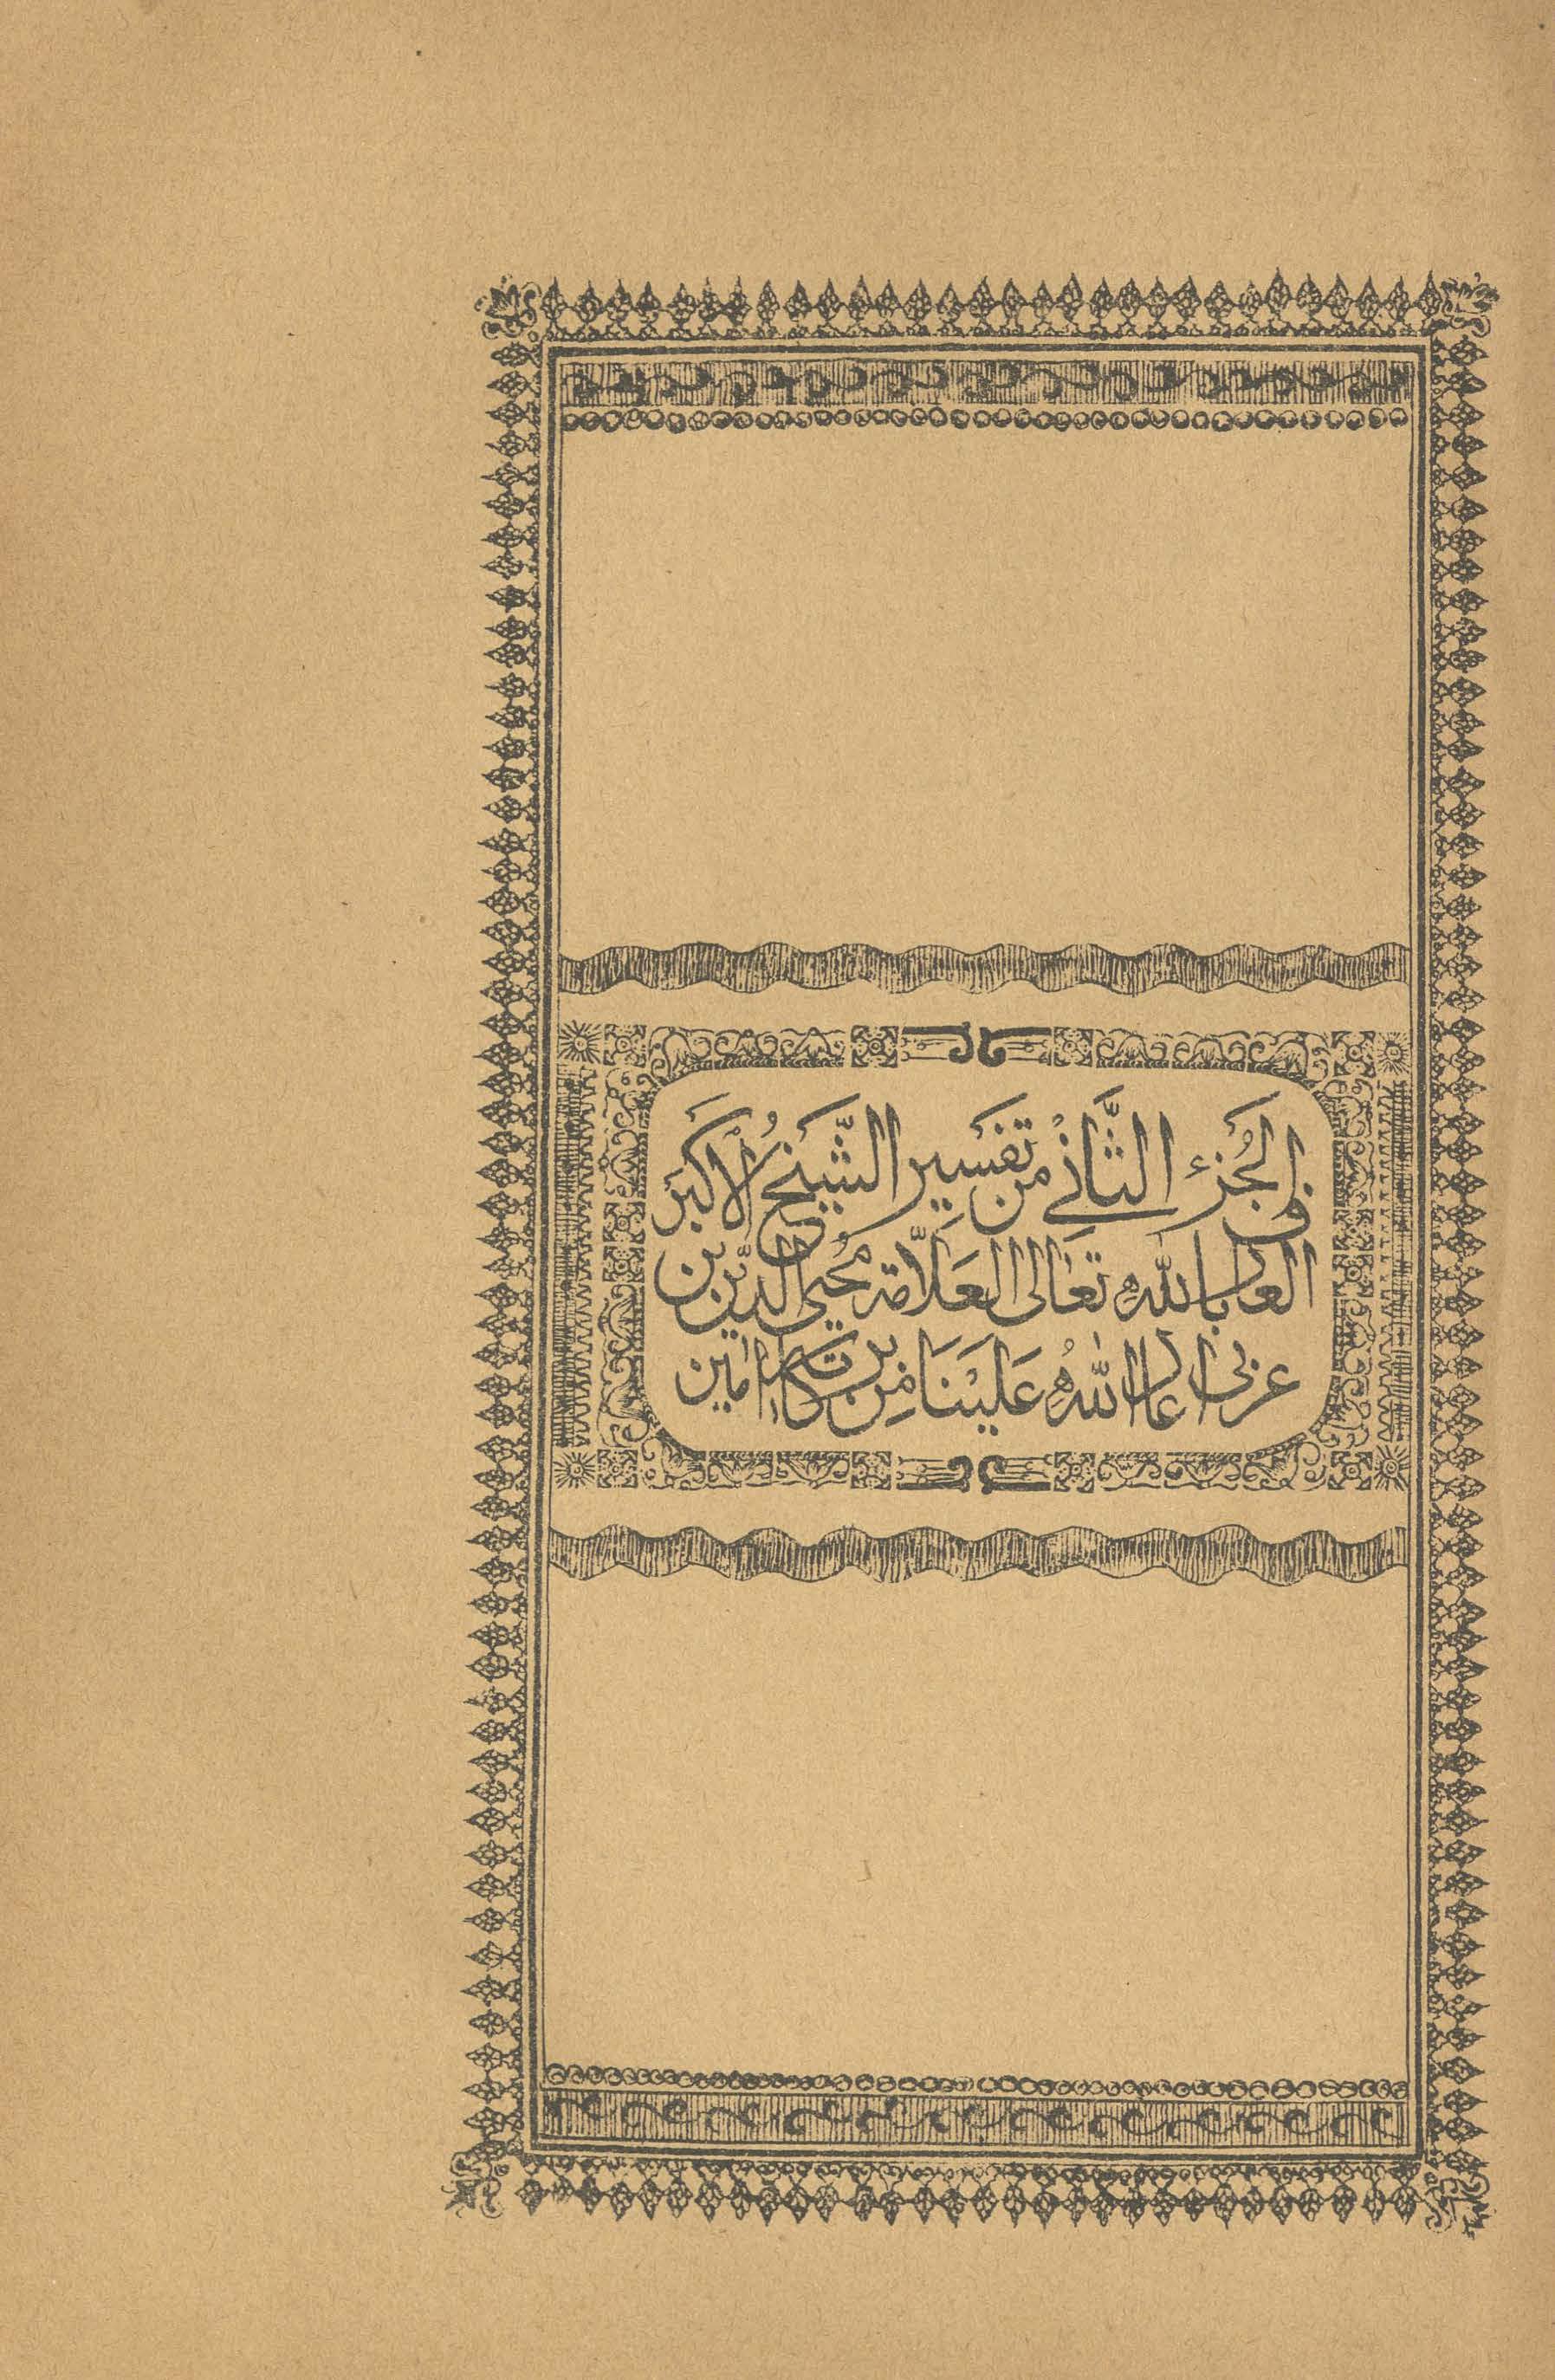 الجُزءُ الثَّانِي مِن تَفسِيرِ الشَّيخِ الأَكبَرِ
العارف بالله تعَالى العَلَّامة مُحيي الدِّين بن
عربى اعاد اللهُ عَلَينَا مِن بركاته امين